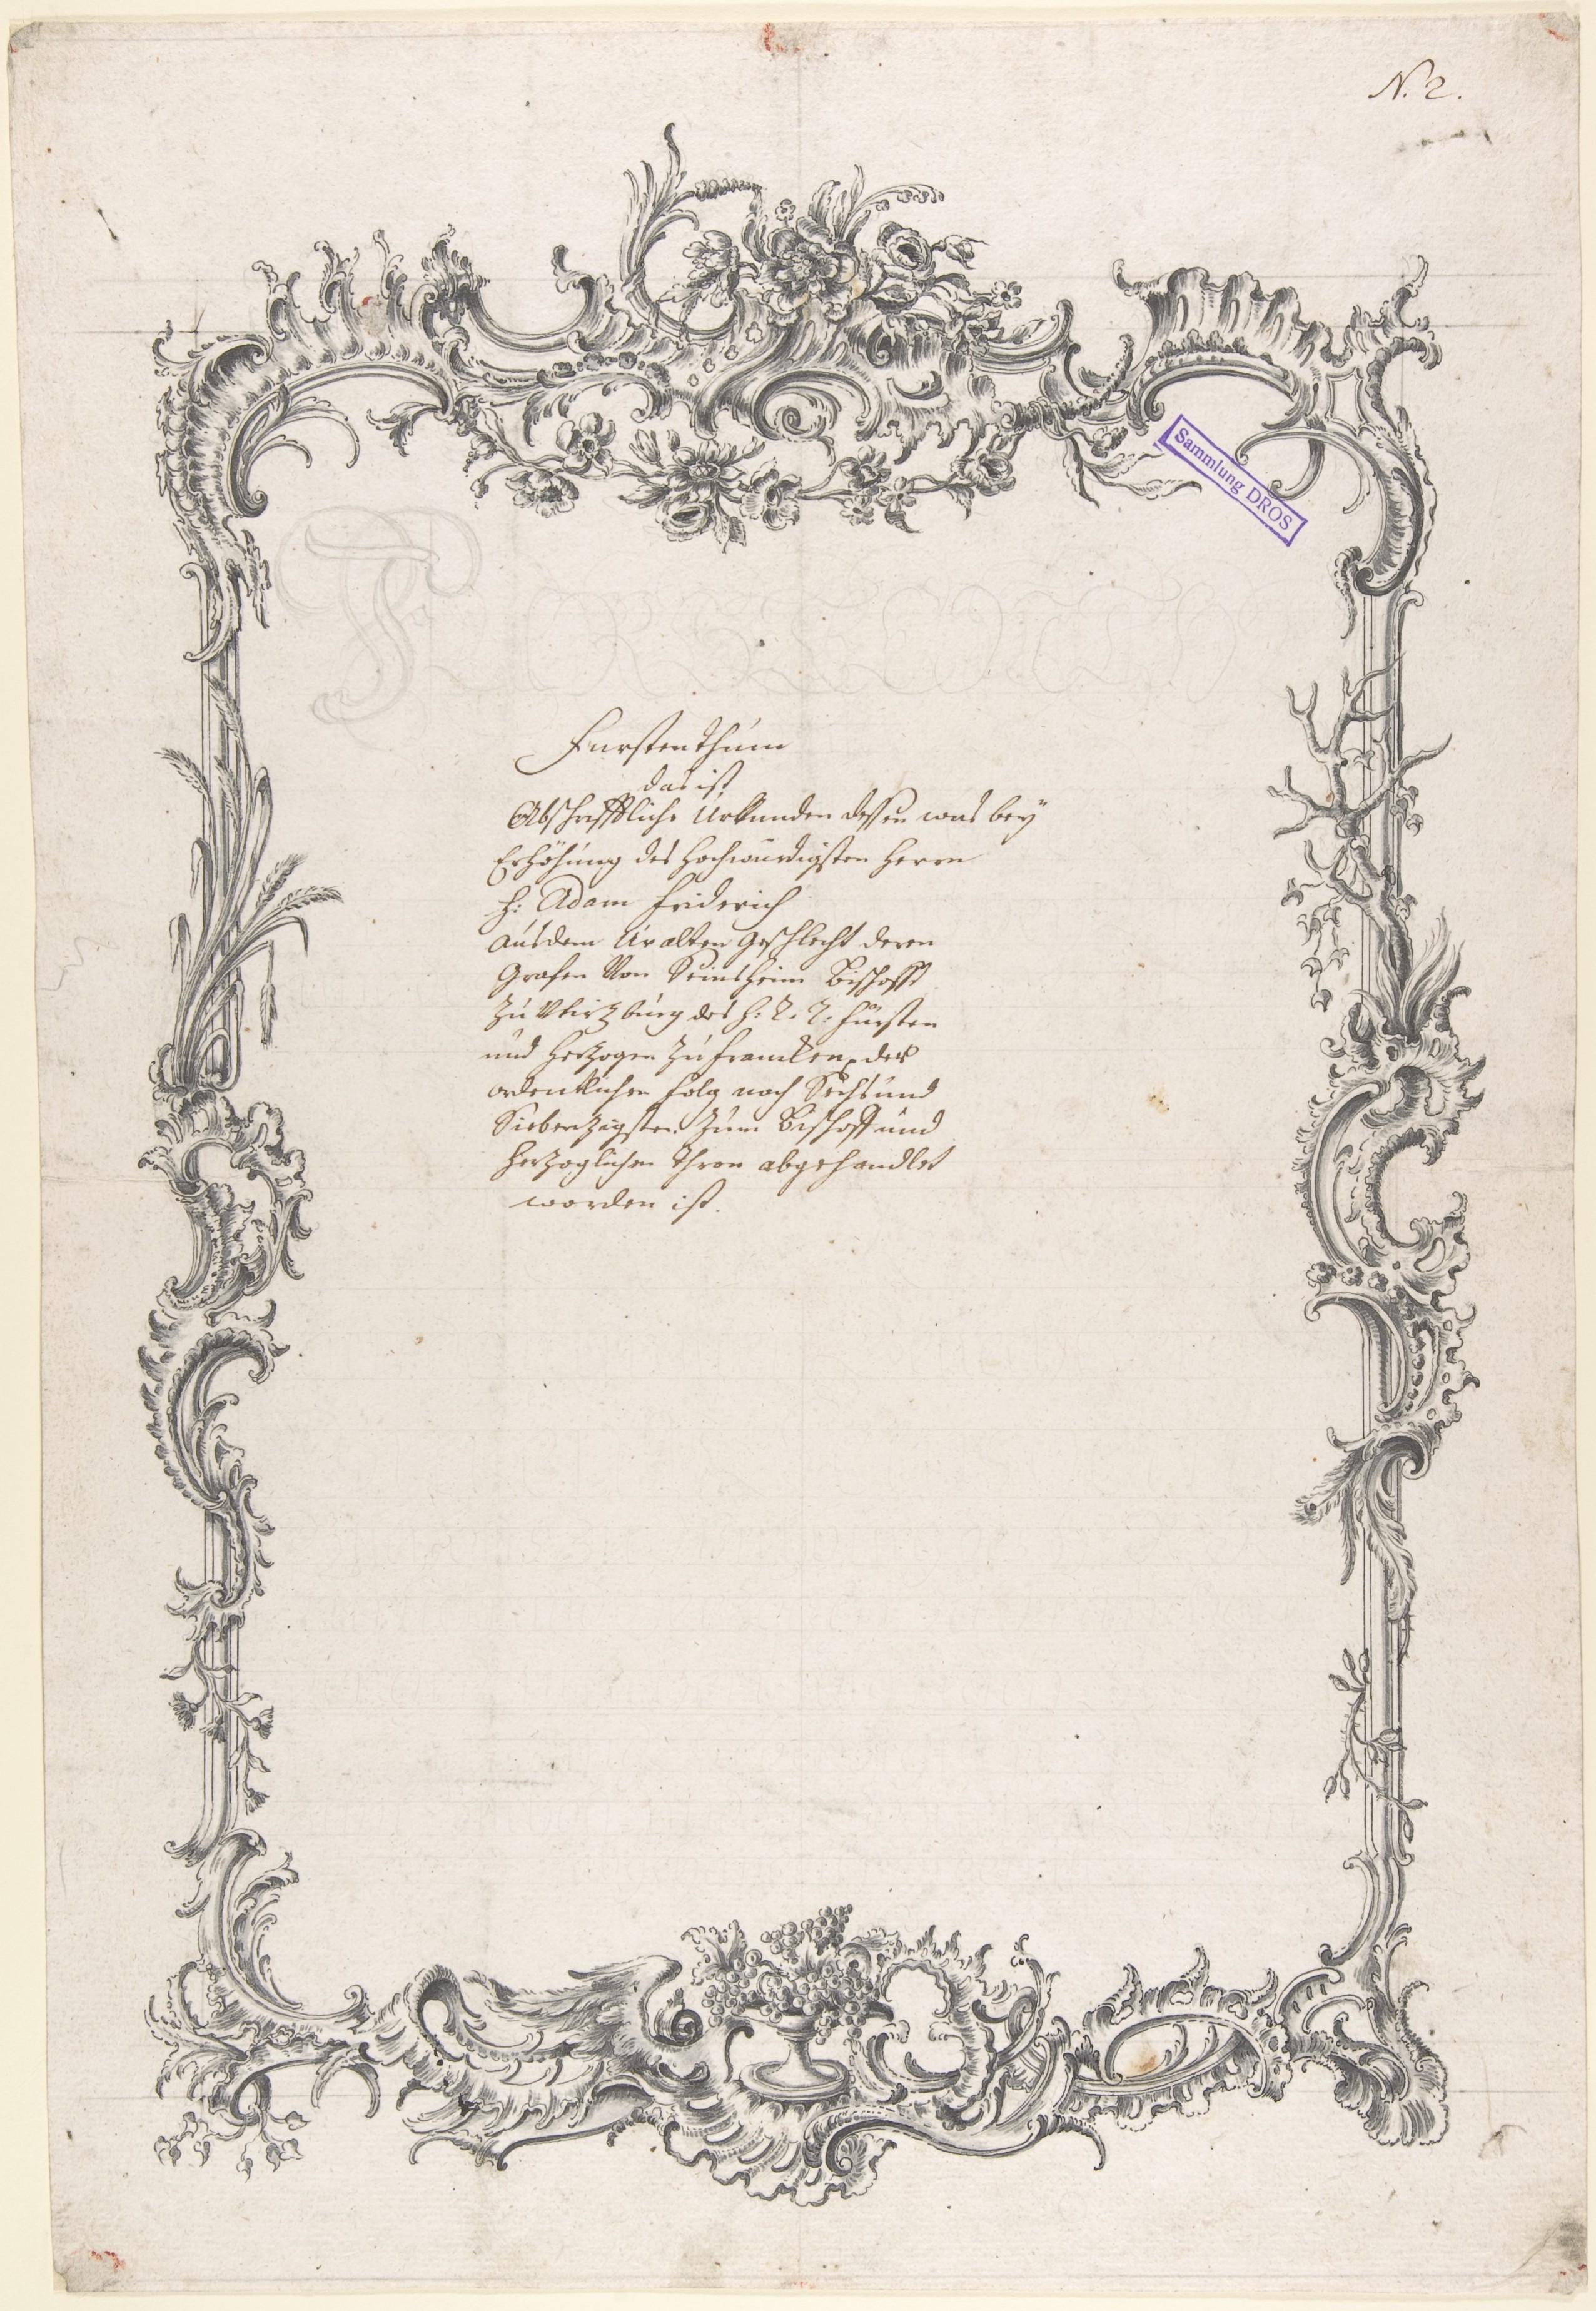 N. 2.
Sammlung DROS
Furstenthum
das ist
Abschrifftliche Urkunden dessen was bey
Erhöhung des Hochwürdigsten Herrn
H: Adam Friderich
aus dem Uralten geschlecht deren
Grafen Von Seinsheim Bischoffs
zu Wirtzburg des H: R: R: Fürsten
und Hertzogen zu Francken, der
ordentlichen folg nach Sechs und
Siebenzigsten zum Bischoff und
Hertzoglichen Thron abgehandlet
worden ist.